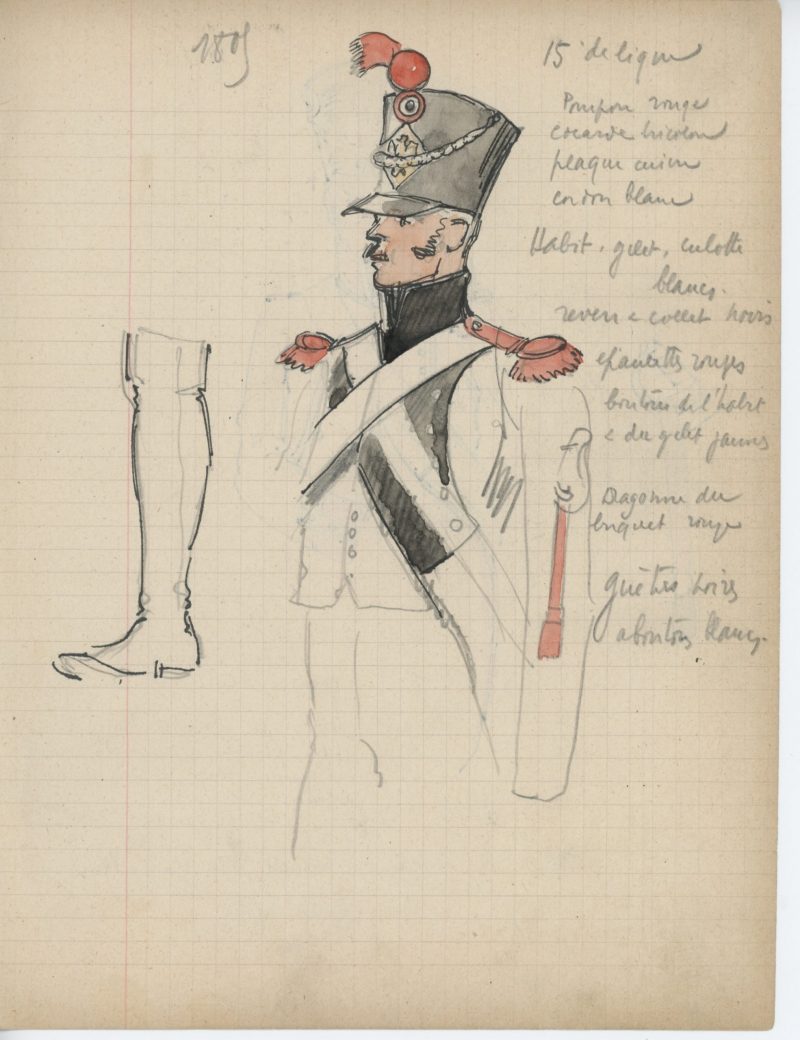 1805
15e de ligne
Pompon rouge
cocarde tricolore
plaque cuivre
cordon blanc
Habit, gilet, culotte
blancs.
revers & collet noirs
épaulettes rouges
boutons de l'habit
& du gilet jaunes
Dragonne du
briquet rouge
guêtres noires
a boutons blancs.